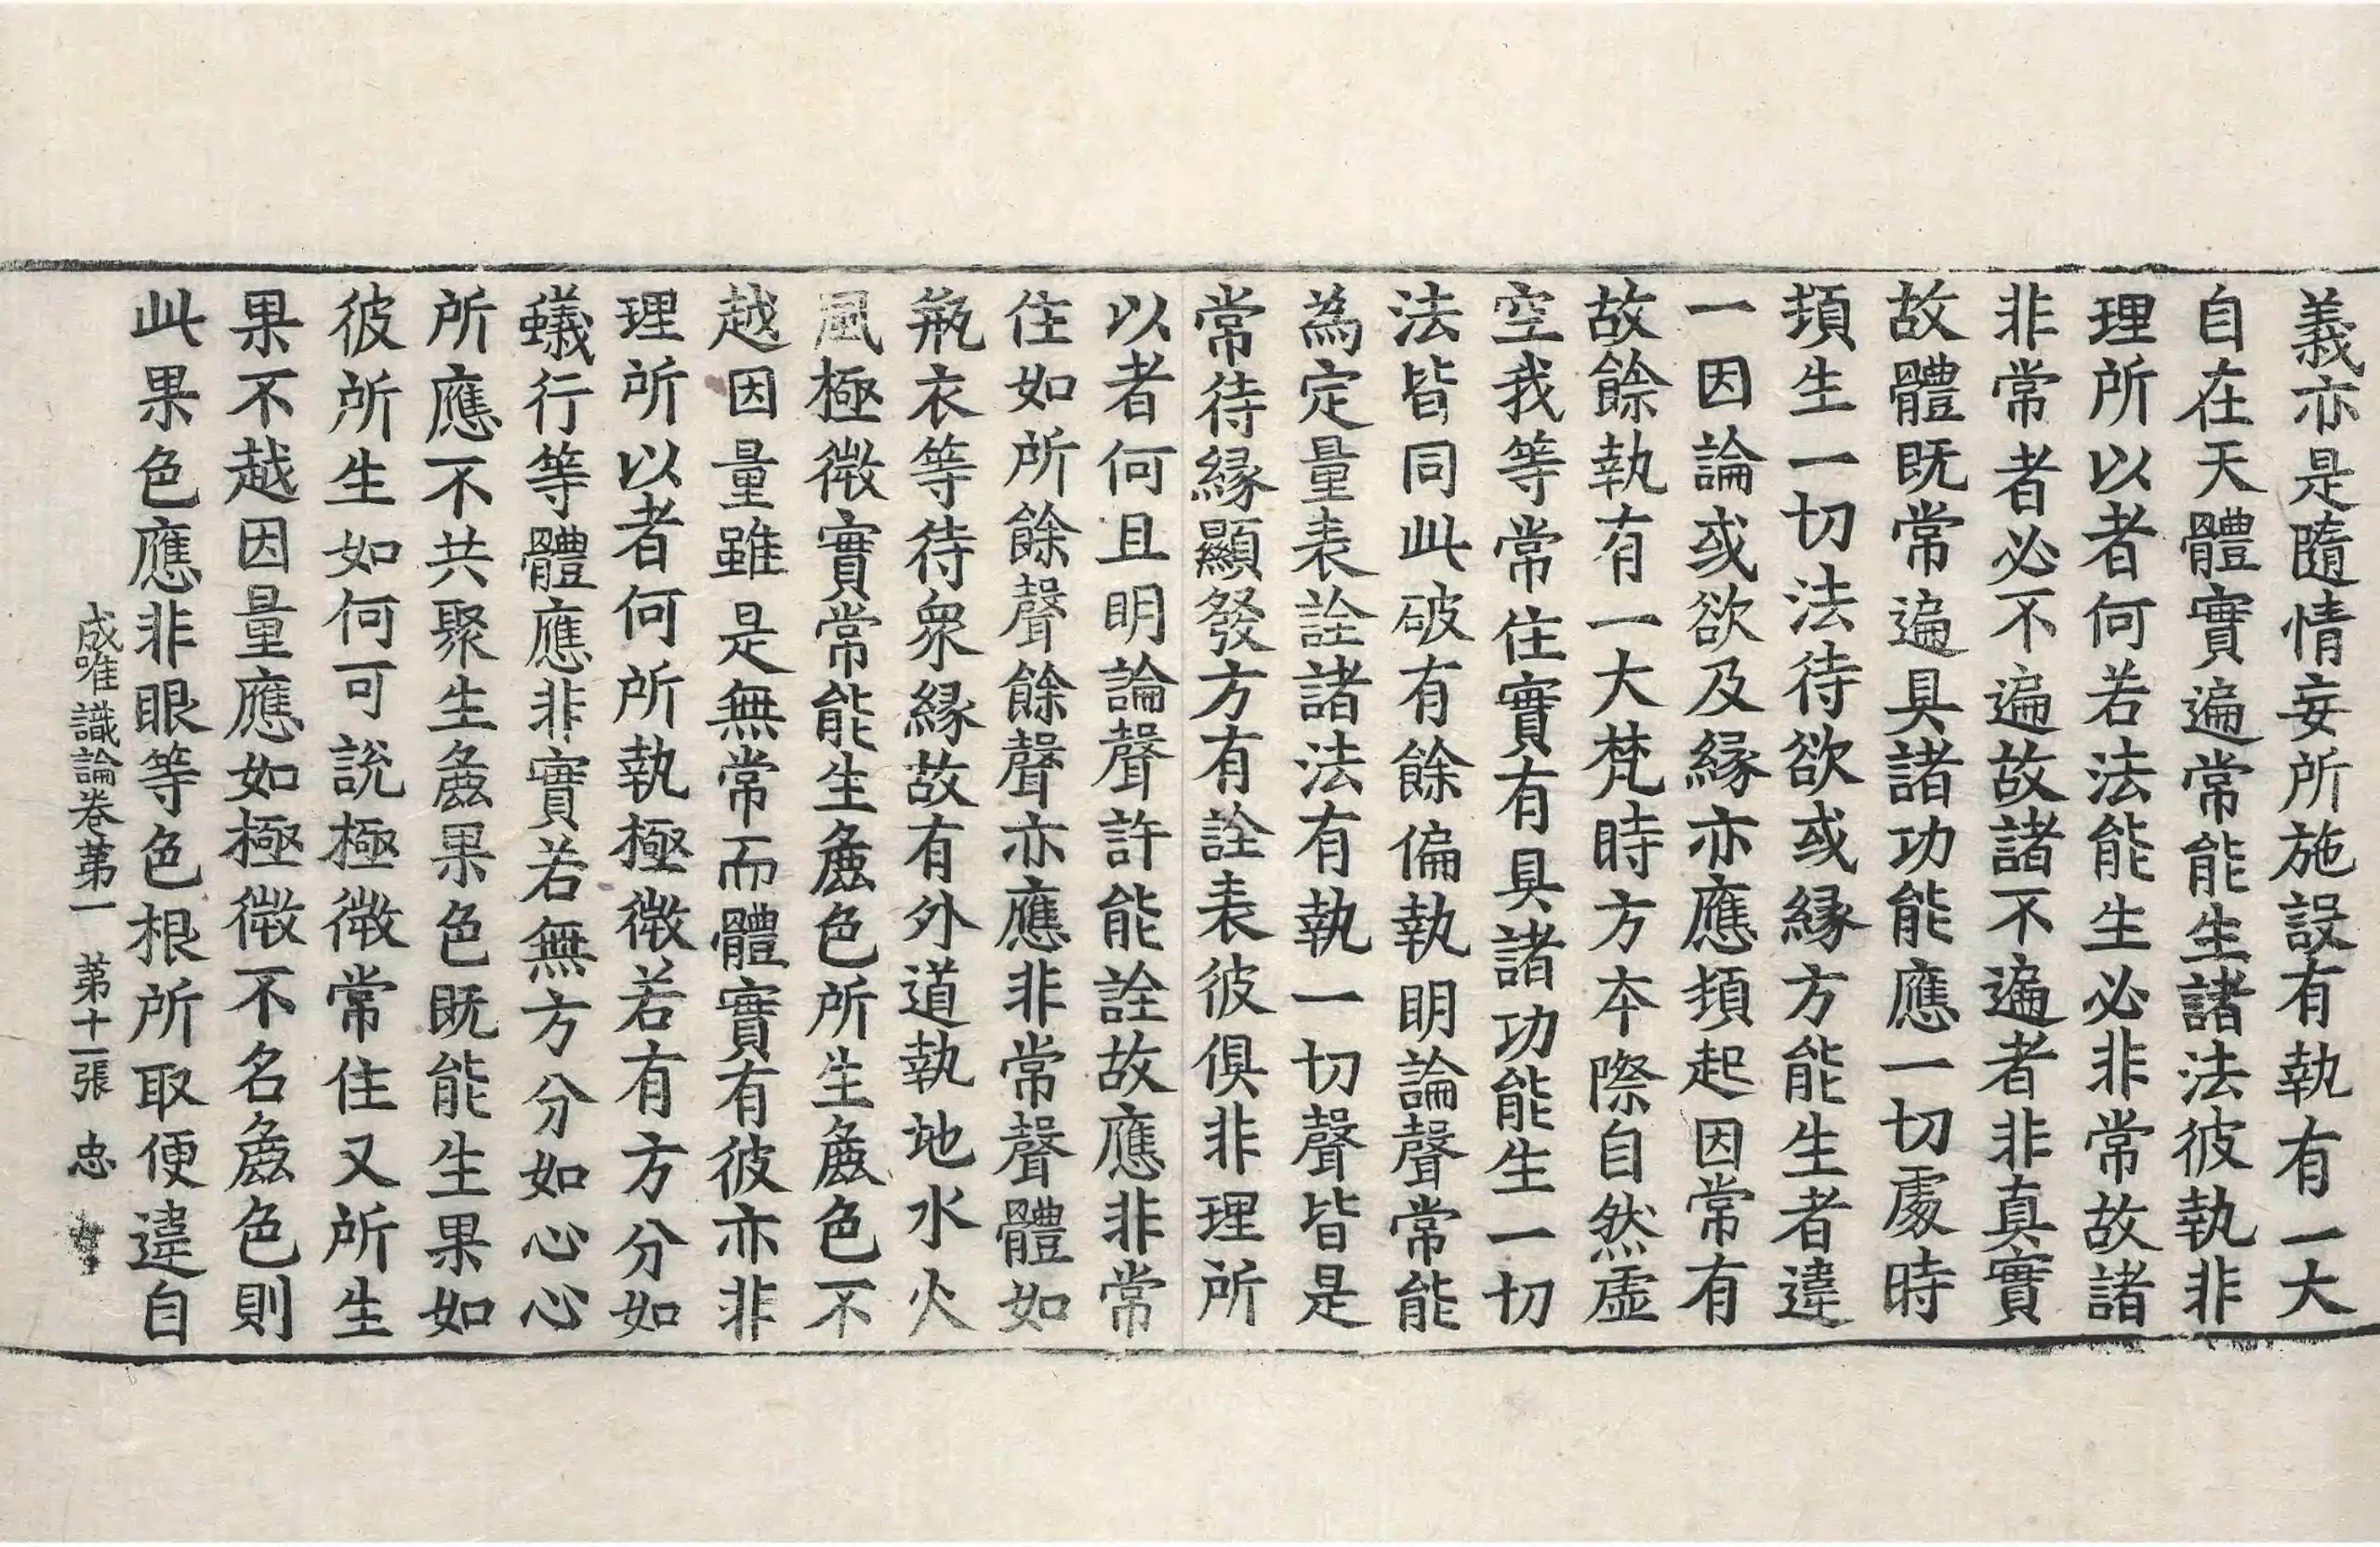 義亦是隨情妄所施設有執有一大
自在天體實遍常能生諸法彼執非
理所以者何若法能生必非常故諸
非常者必不遍故諸不遍者非真實
故體既常遍具諸功能應一切處時
頓生一切法待欲或緣方能生者違
一因論或欲及緣亦應頓起因常有
故餘執有一大梵時方本際自然虛
空我等常住實有具諸功能生一切
法皆同此破有餘偏執明論聲常能
為定量表詮諸法有執一切聲皆是
常待緣顯發方有詮表彼俱非理所
以者何且明論聲許能詮故應非常
住如所餘聲餘聲亦應非常聲體如
瓶衣等待衆緣故有外道執地水火
風極微實常能生麁色所生麁色不
越因量雖是無常而體實有彼亦非
理所以者何所執極微若有方分如
蟻行等體應非實若無方分如心心
所應不共聚生麁果色既能生果如
彼所生如何可說極微常住又所生
果不越因量應如極微不名麁色則
此果色應非眼等色根所取便違自
成唯識論卷第一 第十二張 忠